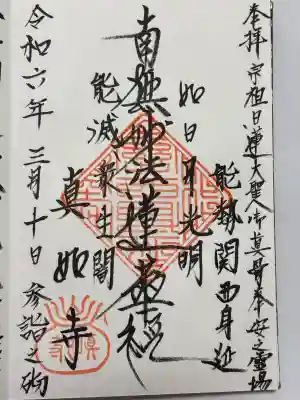 奉拝 宗祖日蓮大聖人御真骨奉安之霊場
能勢関西身延
如日月光明
南無妙法蓮華経
能滅衆生闇
真如寺
令和六年三月十日参詣之砌